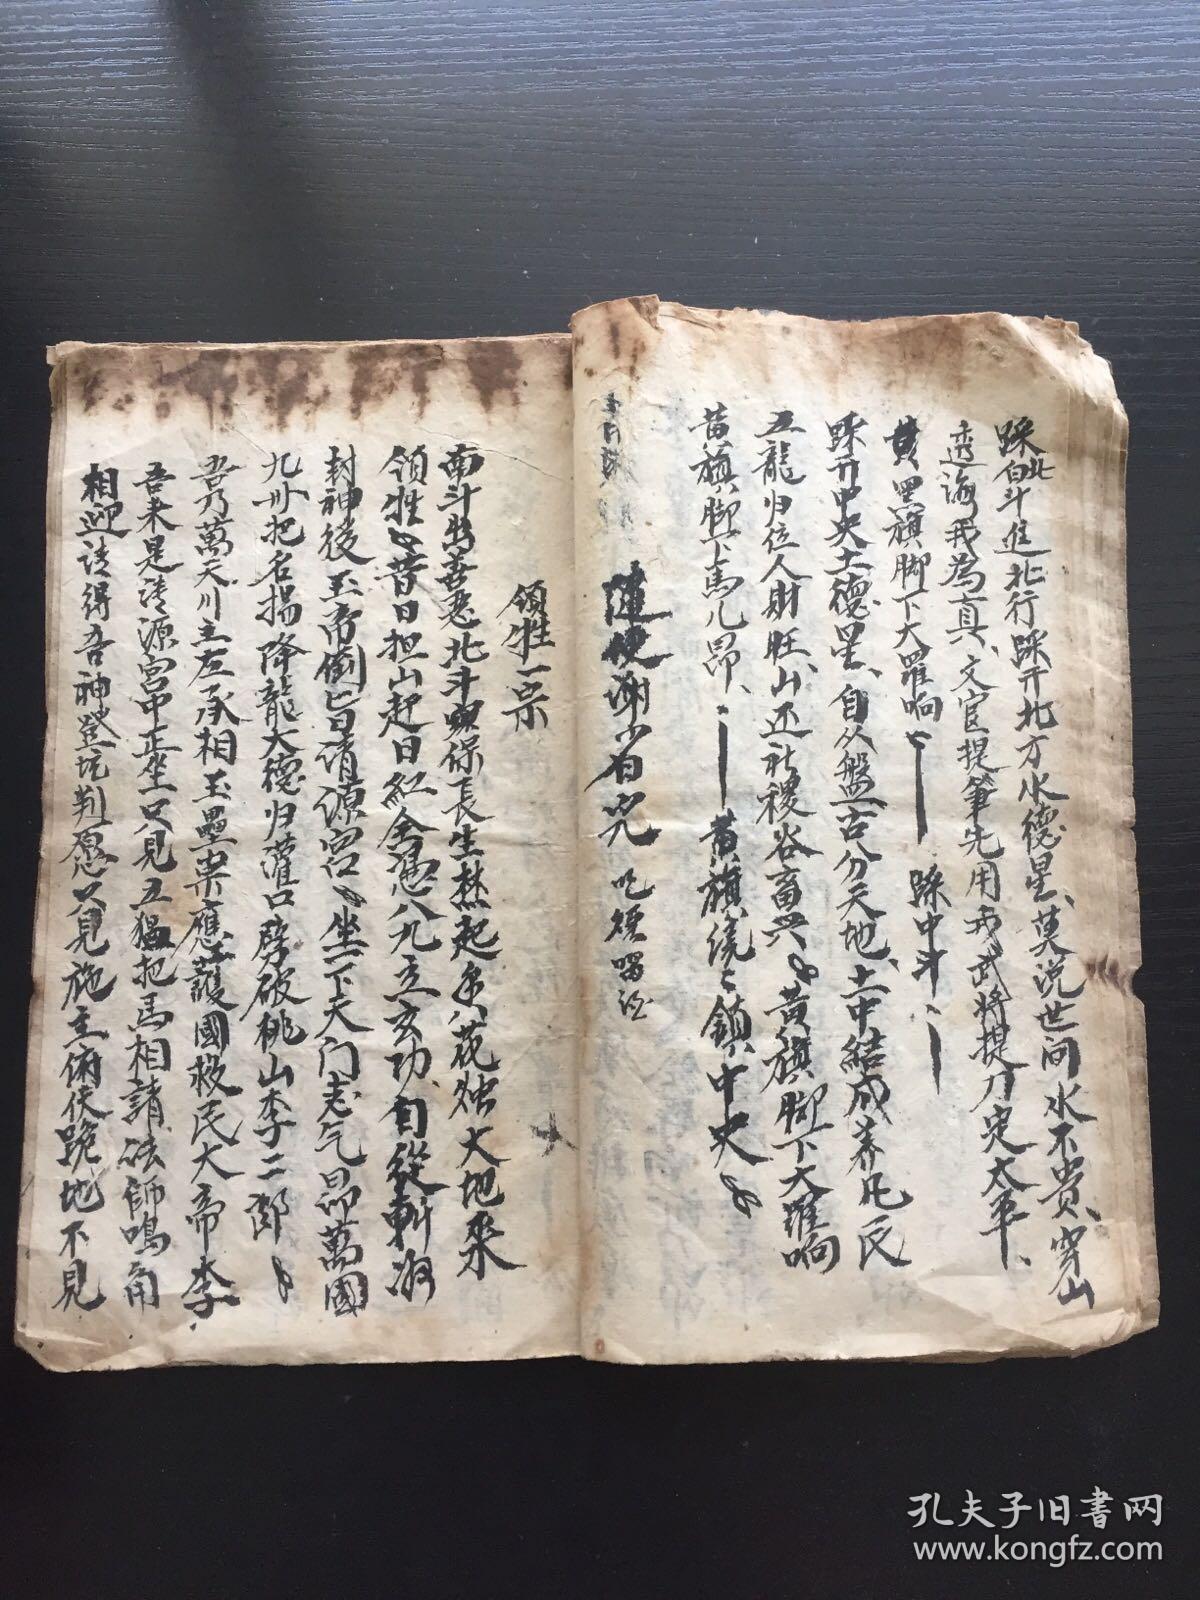 踩北斗進北行踩开北方水德星、莫说世间水不贵、穿山
透海我為真、文官提筆先用我武将提刀定太平、
黑旗脚下大羅响 踩中斗
踩开中央土德星、自从盤古分天地、土中結成养凡民
五龍归位人财旺、山还社稷谷畜兴 黄旗脚下大羅响
黄旗脚下馬儿昂、 黄旗繞々鎖中央
隨便謝小白咒
領牲一宗
南斗出善惡北斗保長生焚起大地來
領牲 昔日担山赶日紅全憑八九玄功、自從斬
封神後玉帝倒旨清源宮 坐下天门志气昂萬國
九州把名揚降龍大德归灌口劈破桃山李二郎
吾乃萬天川主左承相玉壘栗應護國救民大帝李
吾來是清源宮中正坐只見五猖把馬相請法師鳴角
相迎 請得吾神登坑判愿只見施主俯伏跪地不見
孔夫子旧书网
www.kongfz.com